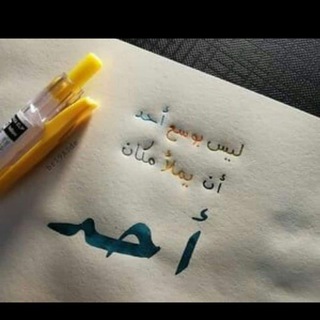 ليس بوسع أحد
أن يملأ مكان
أحد